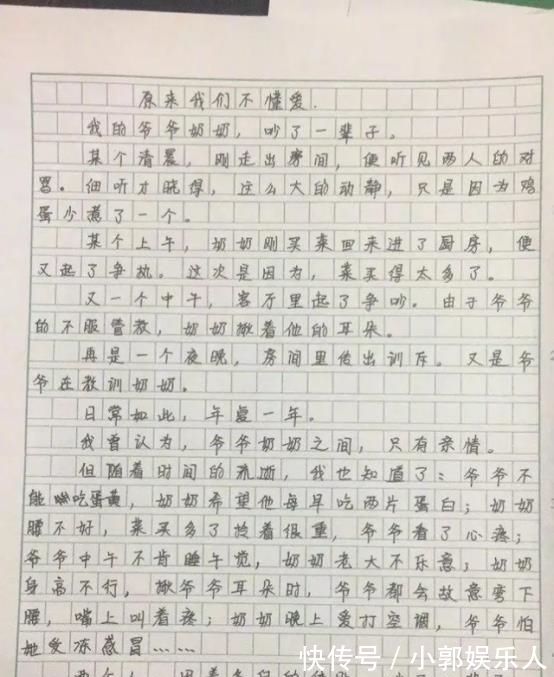 原来我们不懂爱.
我的爷爷奶奶，吵了一辈子。
某个清晨，刚走出房间，便听见两人的对
骂。细听才晓得，这么大的动静，只是因为鸡
蛋少煮了一个。
某个上午，奶奶刚买菜回来进了厨房，便
又起了争执。这次是因为，菜买得太多了。
又一个中午，客厅里起了争吵。由于爷爷
的不服管教，奶奶揪着他的耳朵。
再是一个夜晚，房间里传出训斥。又是爷
爷在教训奶奶。
日常如此，年复一年。
我曾认为，爷爷奶奶之间，只有亲情。
但随着时间的流逝，我也知道了：爷爷不
能吃蛋黄，奶奶希望他每早吃两片蛋白；奶奶
腰不好，菜买多了拎着很重，爷爷看了心疼；
爷爷中午不肯睡午觉，奶奶老大不乐意；奶奶
身高不行，揪爷爷耳朵时，爷爷都会故意弯下
腰，嘴上叫着疼；奶奶晚上爱打空调，爷爷怕
她受冻感冒……
快传号／小郭娱乐人